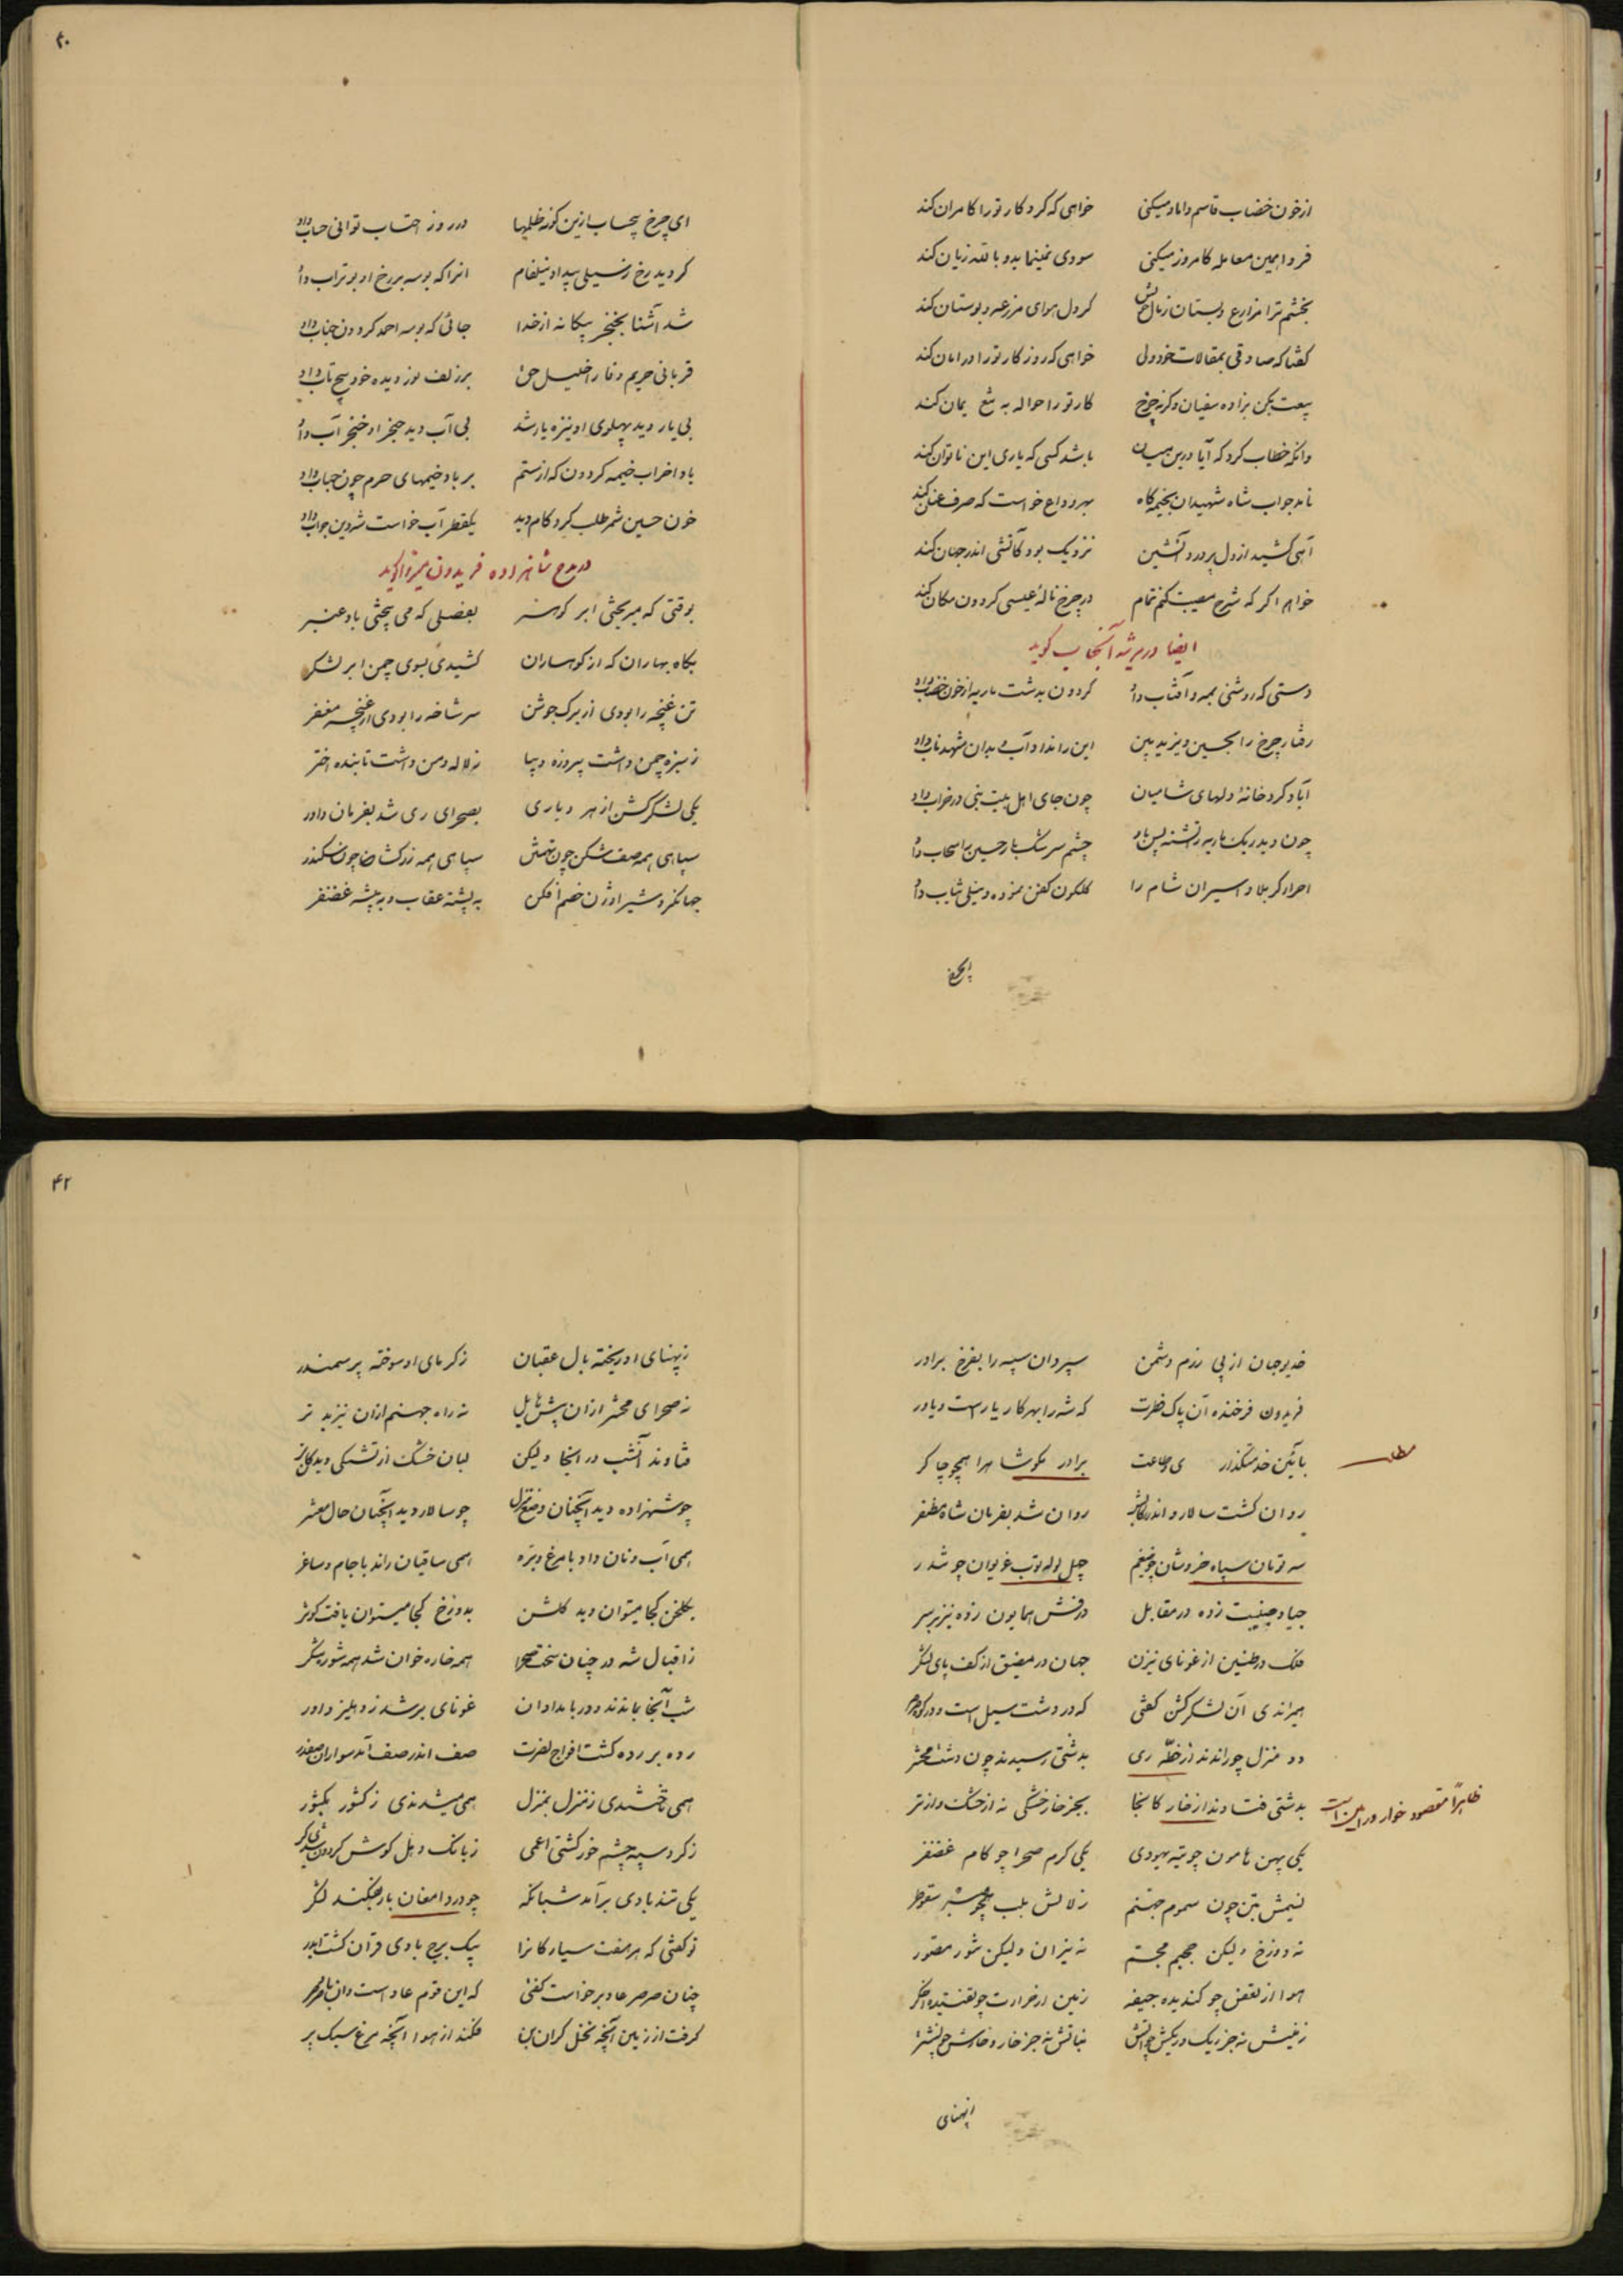 از خون خضاب قاسم داماد میکنی خواهی که کردکار تو را کامران کند
فردا همین معامله کامروز میکنی سودی نمینماید و باللّه زیان کند
بخشم ترا مزارع و بستان ز مال خویش کر دل هوای مزرعه و بوستان کند
کفتا که صادقی بمقالات خود ولی خواهی که روزکار تو را در امان کند
بیعت بکن بزاده سفیان وکرنه چرخ کار تو را حواله به تیغ یمان کند
وانکه خطاب کرد که آیا درین میان باشد کسی که یاری این ناتوان کند
نامد جواب شاه شهیدان بخیمه کاه بهر وداع خواست که صرف عنان کند
آهی کشید از دل پر درد آتشین نزدیک بود کاتشی اندر جهان کند
خواهم اکر که شرح مصیبت کنم تمام در چرخ نالهٔ عیسی کردون مکان کند
ایضا در مرثیه آنجناب کوید
دستی که روشنی بمه و آفتاب داد کردون بدشت ماریه از خون خضاب داد
رفتار چرخ را بحسین و یزید بین این را نداد آب و بدان شهد ناب داد
آباد کرد خانهٔ دلهای شامیان چون جای اهل بیت نبی در خراب داد
چون دید ریک ماریه را تشنه پس ز چشم سرشک بار حسین را سحاب داد
احرار کربلا و اسیران شام را کلکون کفن نمود و نیلی ثیاب داد
۴۰
ای چرخ بیحساب ازین کونه ظلمها در روز احتساب توانی حساب داد
کردید رخ ز سیلی بیداد نیلفام انرا که بوسه بر رخ او بوتراب داد
شد آشنا بخنجر بیکانه از خدا جائی که بوسه احمد کردون جناب داد
قربانی حریم وفا را خلیل حق بر زلف نور دیده خود پیچ تاب داد
بی یار دید پهلوی او نیزه یار شد بی آب دید حنجر او خنجر آب داد
بادا خراب خیمه کردون که از ستم بر باد خیمهای حرم چون حباب داد
خون حسین شمر طلب کرد کام دید یکقطره آب خواست شه دین جواب داد
در مدح شاهزاده فریدون میرزا کوید
بوقتی که میریختی ابر کوهر بفصلی که می بیختی باد عنبر
بکاه بهاران که از کوهساران کشیدی بسوی چمن ابر لشکر
تن غنچه را بودی از برک جوشن سر شاخه را بودی از غنچه مغفر
ز سبزه چمن داشت پیروزه دیبا ز لاله دمن داشت تابنده اختر
یکی لشکر کشن از هر دیاری بصحرای ری شد بفرمان داور
سپاهی همه صف شکن چون تهمتن سپاهی همه زرکشان چون سکندر
جهانکرد و شیر اوژن خصم افکن به پشته عقاب و به بیشه غضنفر
خدیو جهان از پی رزم دشمن سپرد ان سپه را بفرخ برادر
فریدون فرخنده آن پاک فطرت که شه را بهر کار یار است و یاور
بآئین خدمتکذاری و طاعت برادر نکو شاهرا همچو چاکر
روان کشت سالار و اندر رکابش روان شد بفرمان شاه مظفر
سه تومان سپاه خروشان چو ضیغم چهل لوله توپ غریوان چو تندر
جیاد جنیبت زده در مقابل درفش همایون زده نیز بر سر
فلک در طنین از غونای نیزن جهان در مضیق از کف پای لشکر
همیراندی آن لشکر کشن کفتی که در دشت سیل است و در کوه صرصر
دو منزل چو راندند از خطّه ری بدشتی رسیدند چون دشت محشر
بدشتی فتادند از خار کانجا بجز خار خشکی نه از خشک و از تر
یکی پهن هامون چو تیه یهودی یکی کرم صحرا چو کام غضنفر
نسیمش بتن چون سموم جهنم زلالش بلب همچو شیر سقوطر
نه دوزخ ولیکن جحیم مجسّم نه نیران ولیکن شرر مصوّر
هوا از تعفن چو کندیده جیفه زمین از حرارت چو تفتیده اخکر
زمینش نه جز ریک و ریکش چو آتش نباتش نه جز خار و خارش چو نشتر
مطلب
ظاهراً مقصود خوار ورامین است
۴۲
ز پهنای او ریخته بال عقبان ز کرمای او سوخته پر سمندر
نه صحرای محشر ازان پیش هایل نه راه جهنم ازان نیز بدتر
فتادند آنشب در انجا ولیکن لبان خشک از تشنکی دیدکان تر
چو شهزاده دید آنچنان وضع منزل چو سالار دید آنچنان حال معشر
همی آب و نان داد با مرغ و بره همی ساقیان راند با جام و ساغر
بکلخن کجا میتوان دید کلشن بدوزخ کجا میتوان یافت کوثر
ز اقبال شه در چنان سخت صحرا همه خاره خوان شد همه شوره شکر
شب آنجا بماندند و در بامدادان غونای بر شد ز دهلیز داور
رده بر رده کشت افواج نصرت صف اندر صف آمد سواران صفدر
همی تاختندی ز منزل بمنزل همی میشدندی ز کشور بکشور
ز کرد سپه چشم خور کشتی اعمی ز بانک دهل کوش کردون شدی کر
یکی تند بادی برآمد شبانکه چو در دامغان بار افکند لشکر
تو کفتی که هر هفت سیارکانرا بیک برج بادی قران کشت اندر
چنان صرصر عاد برخواست کفتی که این قوم عاد است وان باد صرصر
کرفت از زمین آنچه نخل کران بن فکند از هوا آنچه مرغ سبک پر